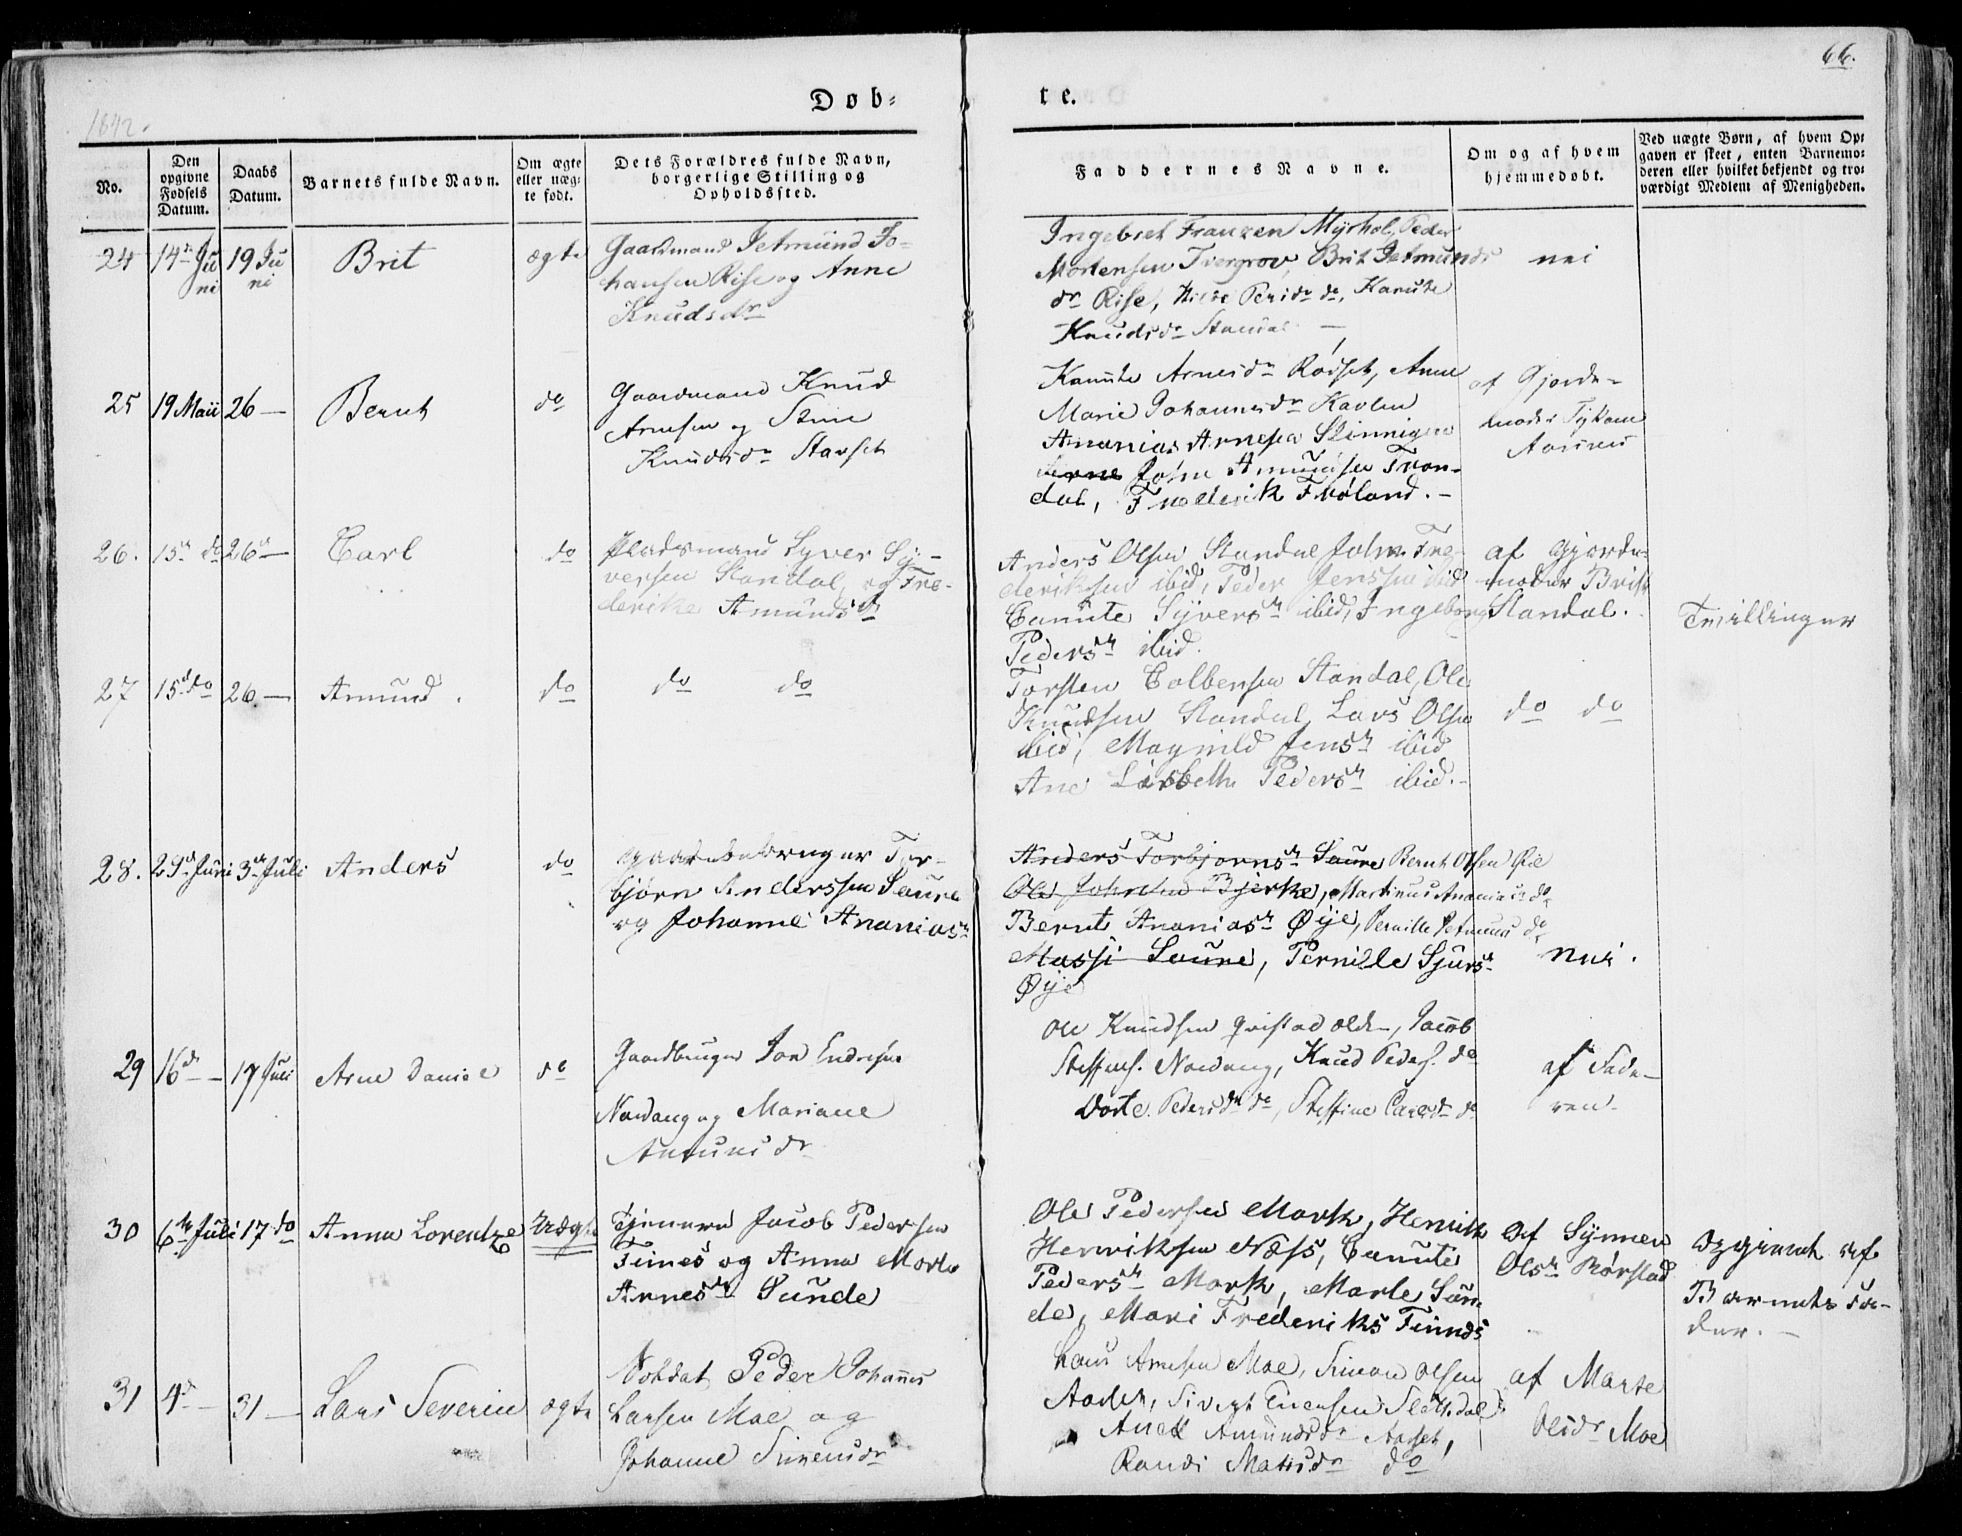 66.
Døb-
te.
1842.
No.
Den opgivne Fødsels Datum.
Daabs Datum.
Barnets fulde Navn.
Om ægte eller uægte født.
Dets Forældres fulde Navn, borgerlige Stilling og Opholdssted.
Faddernes Navne.
Om og af hvem hjemmedøbt.
Ved uægte Børn, af hvem Opgaven er skeet, enten Barnemoderen eller hvilket bekjendt og troværdigt Medlem af Menigheden.
24 14de Juni 19 Juni Brit ægte
Gaardmand Petmund Jo-
hansen Rise og Anne
Knudsdr
Ingebret Franzen Myrhol, Peder
Mortensen Tvergrov, Brit Petmunds
dr Rise, Persdr do, Kanute
Knudsdr Standal
nei
25 19 Maii 26 — Bernt do
Gaardmand Knud
Arnesen og Stine
Knudsdr Starset
Kanute Arnesdr Rødset, Anne
Marie Johannesdr Kavlen
Ananias Arnesen
Arne John Amundsen Tron-
dal, Frederik Frøland. —
af Gjorde-
moder
26. 15de do 26de — Carl do
Pladsmand Syver Sy-
versen Standal, og Fre-
derike Amundsdr
Anders Olsen Standal John Fre-
deriksen ibid, Peder Jenssen ibid
Canute Syversdr ibid, Ingeborg
Pedersdr ibid.
af Gjorde-
moder Brit
Standal.
Tvillinger
27 15de do 26 — Amund. do do do
Torsten Colbensen Standal, Ole
Knudsen Standal, Lars Olsen
ibid, Magnild Jensdr ibid
Ane Lisbeth Pedersdr ibid. —
do do
28. 29de Juni 3de Juli Anders do
Gaardebebruger Tor-
bjørn Anderssen Saure
og Johanne Ananiasdr
Anders Torbjørnsdr Saure Bernt Olsen Øie
Ole Johnsen Bjerke, Martinus Ananias do
Bernt Ananiasdr Øije, Pernille Petmunds do
Massi Saure, Pernille Sjursdr
Øije
nei.
29 16de — 17 Juli Arne Daniel do
Gaardbruger Jon Endresen
Nordang og Mariane
Amundsdr
Ole Knudsen Qvistad old., Jacob
Steffens. Nordang, Knud Peders. do
Dorte Pedersdr do, Steffine do
af Fade-
ren.
30 6te Juli 17 do Anna Lorentze Uægte
Tjenere Jacob Pedersen
Finnes og Anna Marta
Arnesdr Sunde
Ole Pedersen Mork, Henrik
Henriksen Næss, Canute
Pedersdr Mork, Marte Sun-
de, Mari Frederiks Finnes
Af Synnev
Olsdr Rørstad
Opgivet af
Barnets Fa-
der. —
31 4de — 31 — Lars Severin ægte
Soldat Peder Johannes
Larsen Moe og
Johanne Simensdr
Lars Arnesen Moe, Simon Olsen
Aaset, Sivert Slettedal
Anett Amundsdr Aaset,
Randi Matisdr do
af Marte
Olsdr Moe